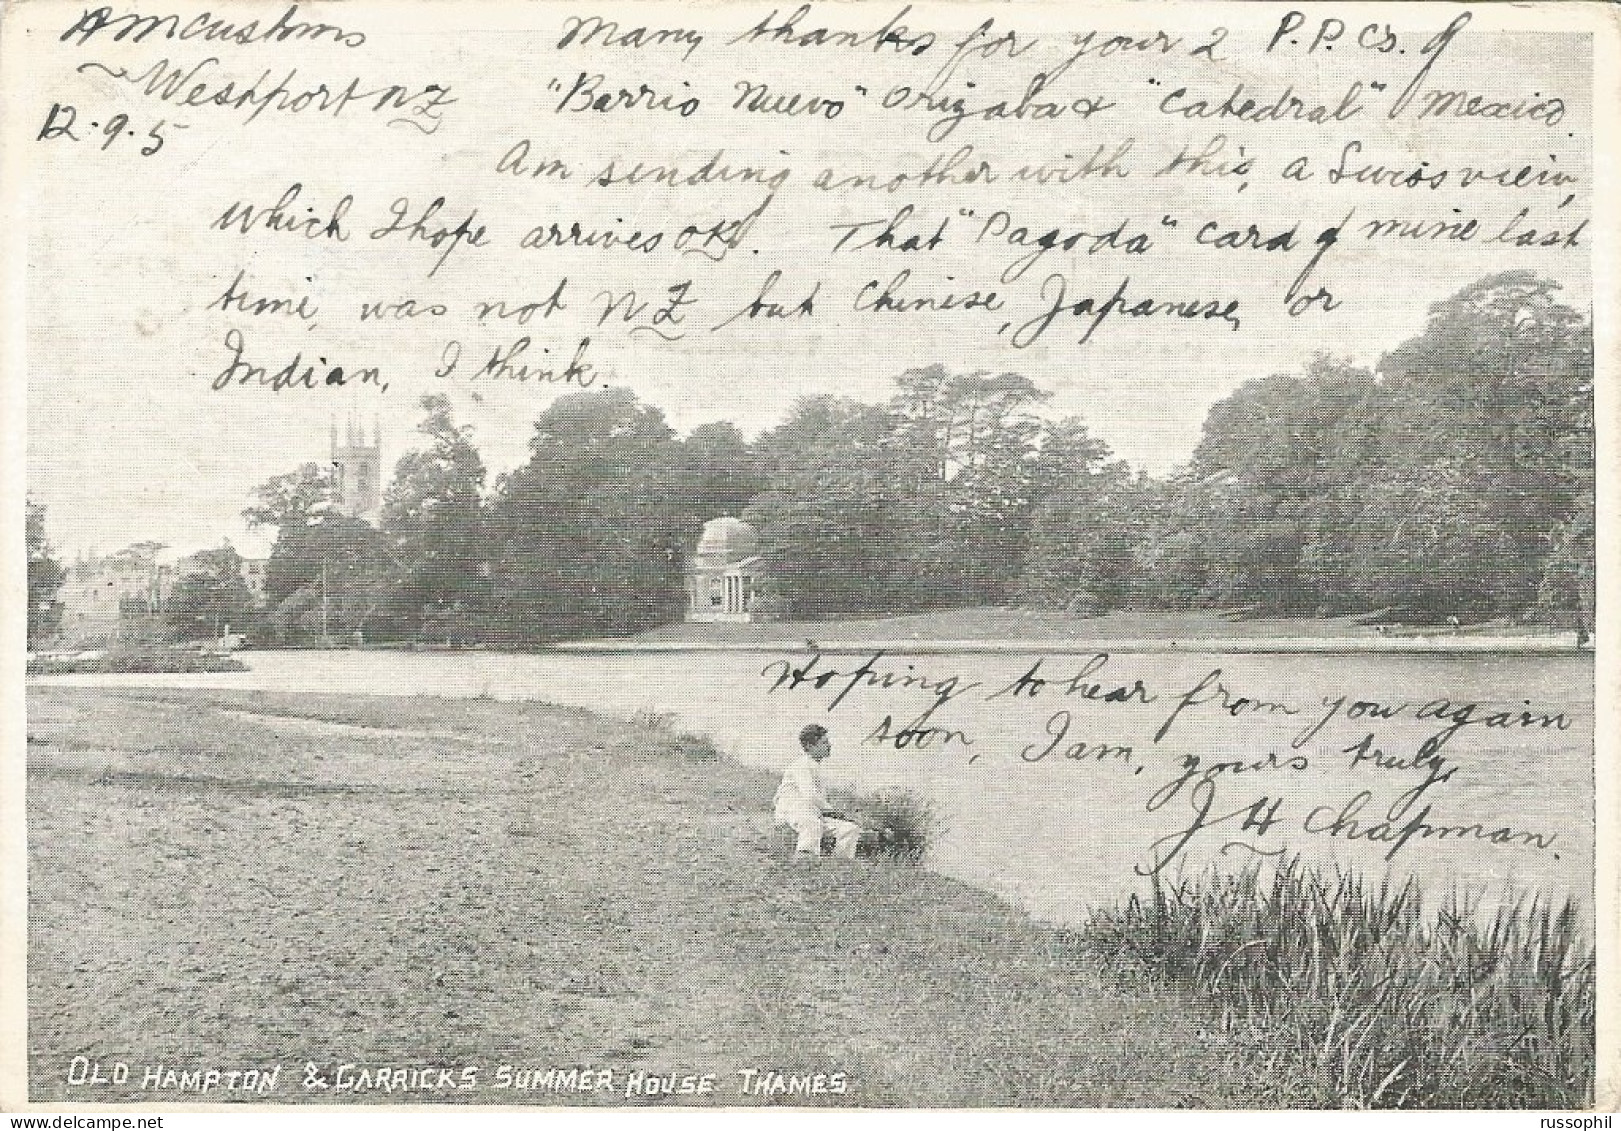 HM Customs
Westport NZ
12.9.5
Many thanks for your 2 P.P.Cs. of
"Barrio Nuevo" Orizaba & "Catedral" Mexico.
Am sending another with this, a Swiss view,
which I hope arrives OK. That "Pagoda" card of mine last
time, was not NZ but Chinese, Japanese, or
Indian, I think.
Hoping to hear from you again
soon, I am, yours truly,
J H Chapman.
OLD HAMPTON & GARRICKS SUMMER HOUSE THAMES
russophil